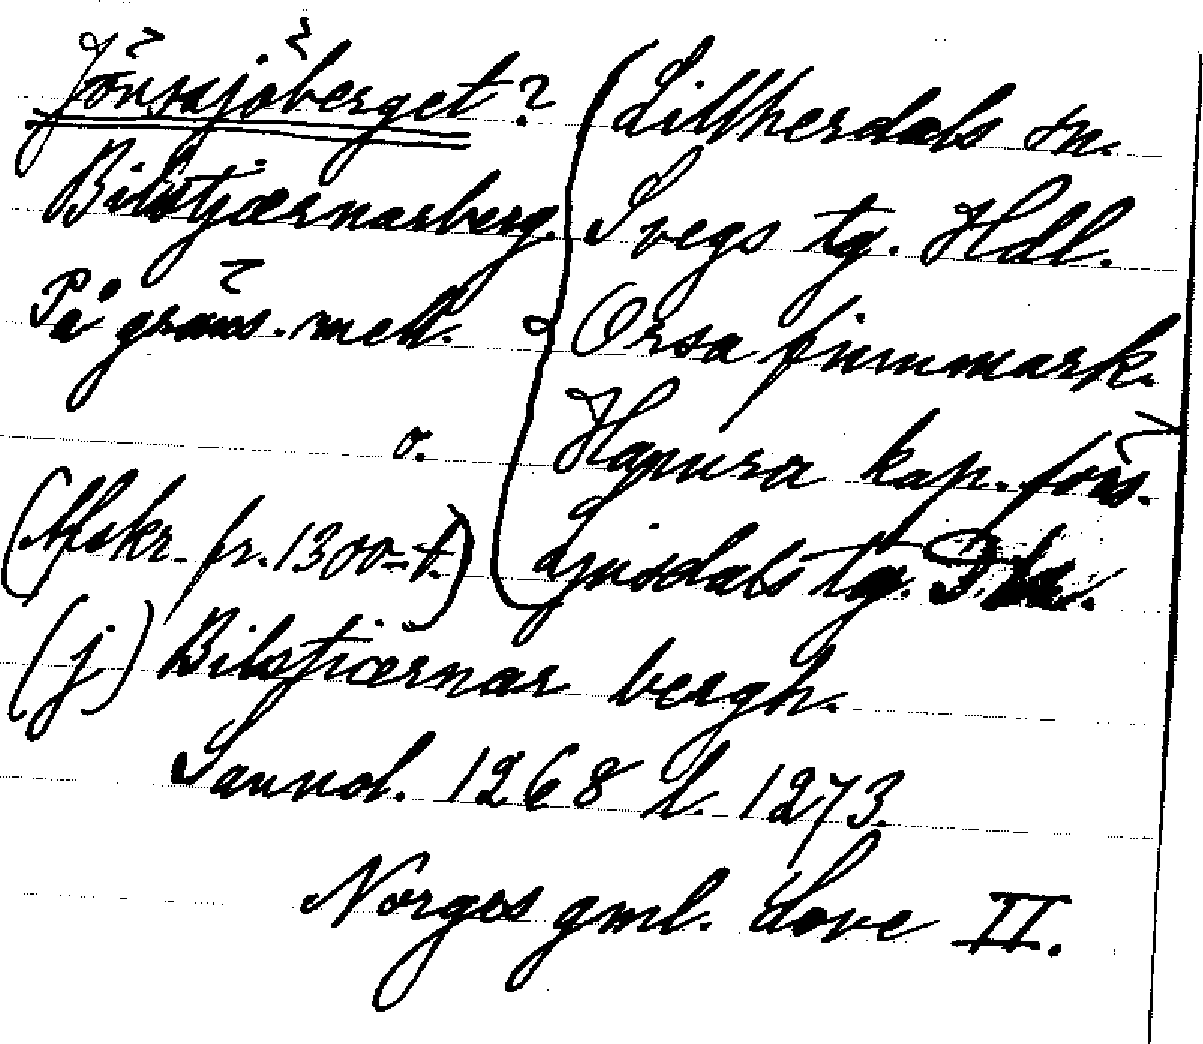 Jönssjöberget? Lillherdals sn.
Bilstjærnarberg. Svegs tg. Hdl.
På gräns. mell. Orsa finnmark.
o. Hamra kap. förs.
(Afskr. fr. 1300-t.) Ljusdals tg.
(j) Bilstiærnar bergh.
Sannol. 1268 l. 1273.
Norges gml. Love II.